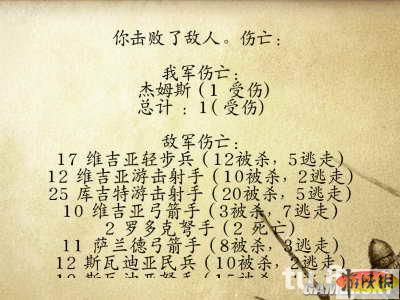 你击败了敌人。伤亡:
我军伤亡:
杰姆斯 (1 受伤)
总计 : 1( 受伤)
敌军伤亡:
17 维吉亚轻步兵 (12被杀, 5逃走)
12 维吉亚游击射手 (10被杀, 2逃走)
25 库吉特游击射手 (20被杀, 5逃走)
10 维吉亚弓箭手 (3被杀, 7逃走)
2 罗多克弩手 (2 死亡)
11 萨兰德弓箭手 (8被杀, 3逃走)
12 斯瓦迪亚民兵 (10被杀, 2逃走)